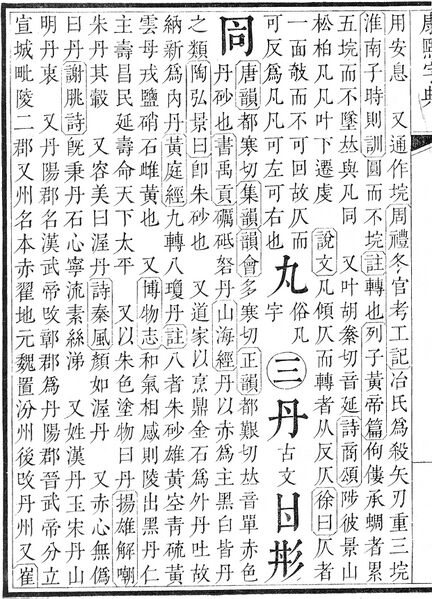 康熙字典
用安息　又通作垸周禮冬官考工記冶氏爲殺矢刃重三垸
淮南子時則訓圜而不垸註轉也列子黃帝篇佝僂承蜩者累
五垸而不墜𠀤與凡同　又叶胡𣗥切音延詩商頌陟彼景山
松柏丸丸叶下遷虔　說文丸傾仄而轉者从反仄徐曰仄者
一面敧而不可回故仄而
可反爲丸丸可左可右也　丸俗丸字　三　丹古文𠁿彤
𠕑唐韻都寒切集韻韻會多寒切正韻都艱切𠀤音單赤色
丹砂也書禹貢礪砥砮丹山海經丹以赤爲主黑白皆丹
之類陶弘景曰卽朱砂也　又道家以烹鼎金石爲外丹吐故
納新爲內丹黃庭經九轉八瓊丹註八者朱砂雄黃空靑硫黃
雲母戎鹽硝石雌黃也　又博物志和氣相感則陵出黑丹仁
主壽昌民延壽命天下太平　又以朱色塗物曰丹揚雄解嘲
朱丹其轂　又容美曰渥丹詩秦風顏如渥丹　又赤心無僞
曰丹謝朓詩旣秉丹石心寧流素絲涕　又姓漢丹玉宋丹山
明丹衷　又丹陽郡名漢武帝攺鄣郡爲丹陽郡晉武帝分立
宣城毗陵二郡又州名本赤翟地元魏置汾州後攺丹州又崔